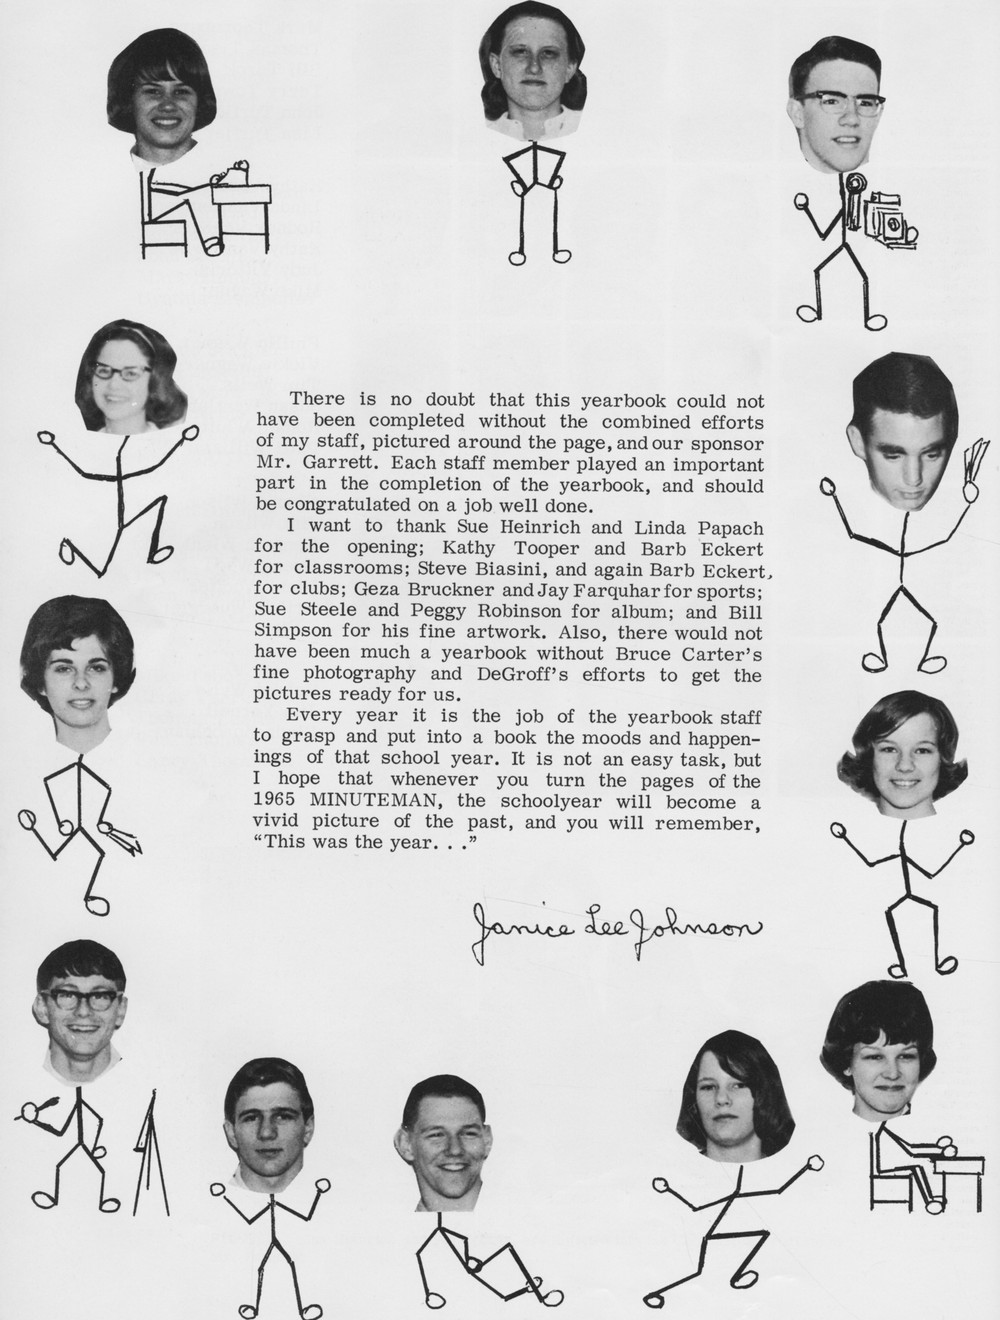 There is no doubt that this yearbook could not
have been completed without the combined efforts
of my staff, pictured around the page, and our sponsor
Mr. Garrett. Each staff member played an important
part in the completion of the yearbook, and should
be congratulated on a job well done.
I want to thank Sue Heinrich and Linda Papach
for the opening; Kathy Tooper and Barb Eckert
for classrooms; Steve Biasini, and again Barb Eckert,
for clubs; Geza Bruckner and Jay Farquhar for sports;
Sue Steele and Peggy Robinson for album; and Bill
Simpson for his fine artwork. Also, there would not
have been much a yearbook without Bruce Carter's
fine photography and DeGroff's efforts to get the
pictures ready for us.
Every year it is the job of the yearbook staff
to grasp and put into a book the moods and happen-
ings of that school year. It is not an easy task, but
I hope that whenever you turn the pages of the
1965 MINUTEMAN, the schoolyear will become a
vivid picture of the past, and you will remember,
“This was the year. . .”
Janice Lee Johnson